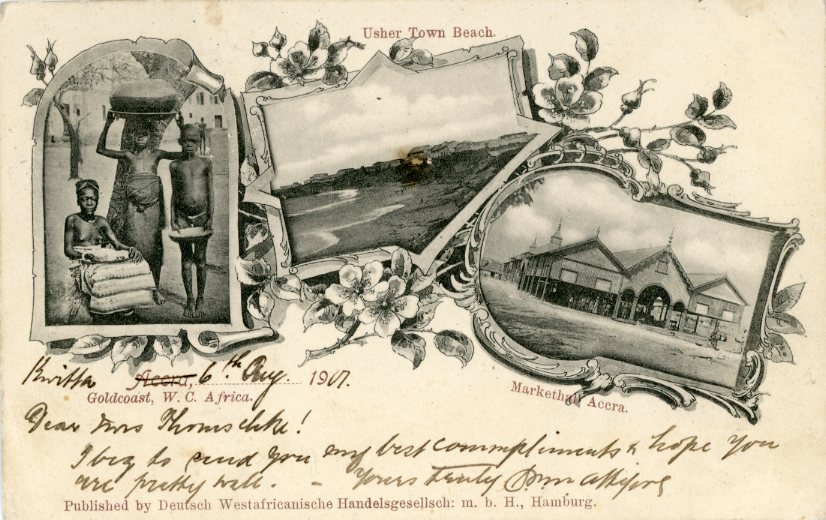 Usher Town Beach.
Kwitta Accra, 6th Aug. 1901.
Goldcoast, W. C. Africa.
Markethall Accra.
Dear Mrs
I beg to send you my best commpliments & hope you
are pretty well. - Yours truly
Published by Deutsch Westafricanische Handelsgesellsch: m. b. H., Hamburg.